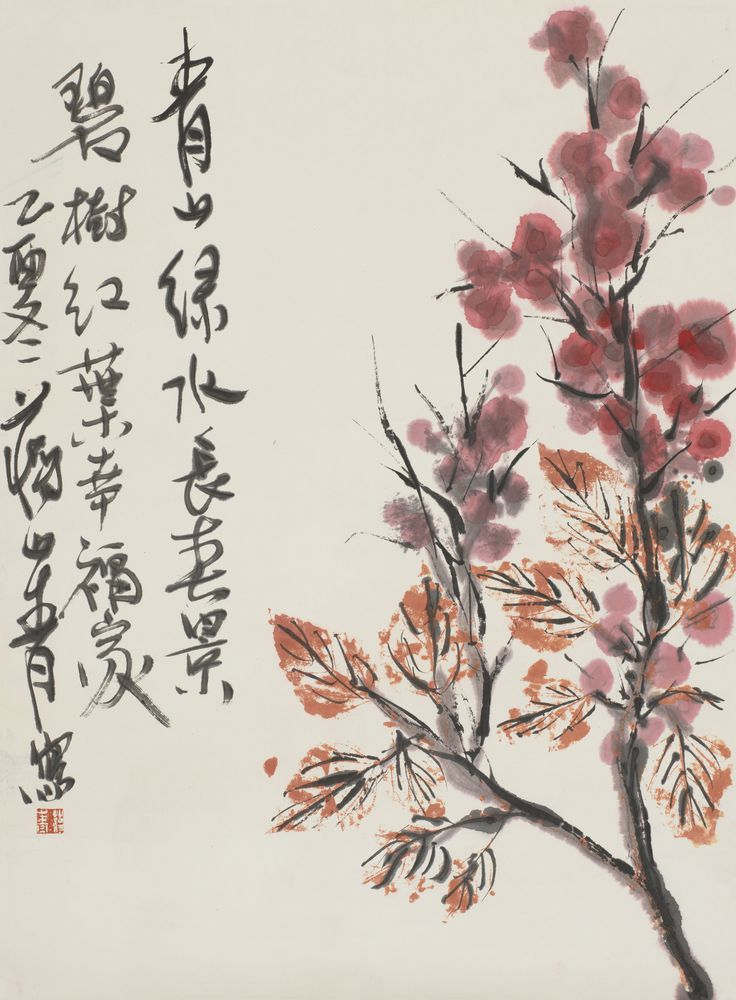 青山绿水長春景
碧樹红葉幸福家
乙酉冬蔣山青寫